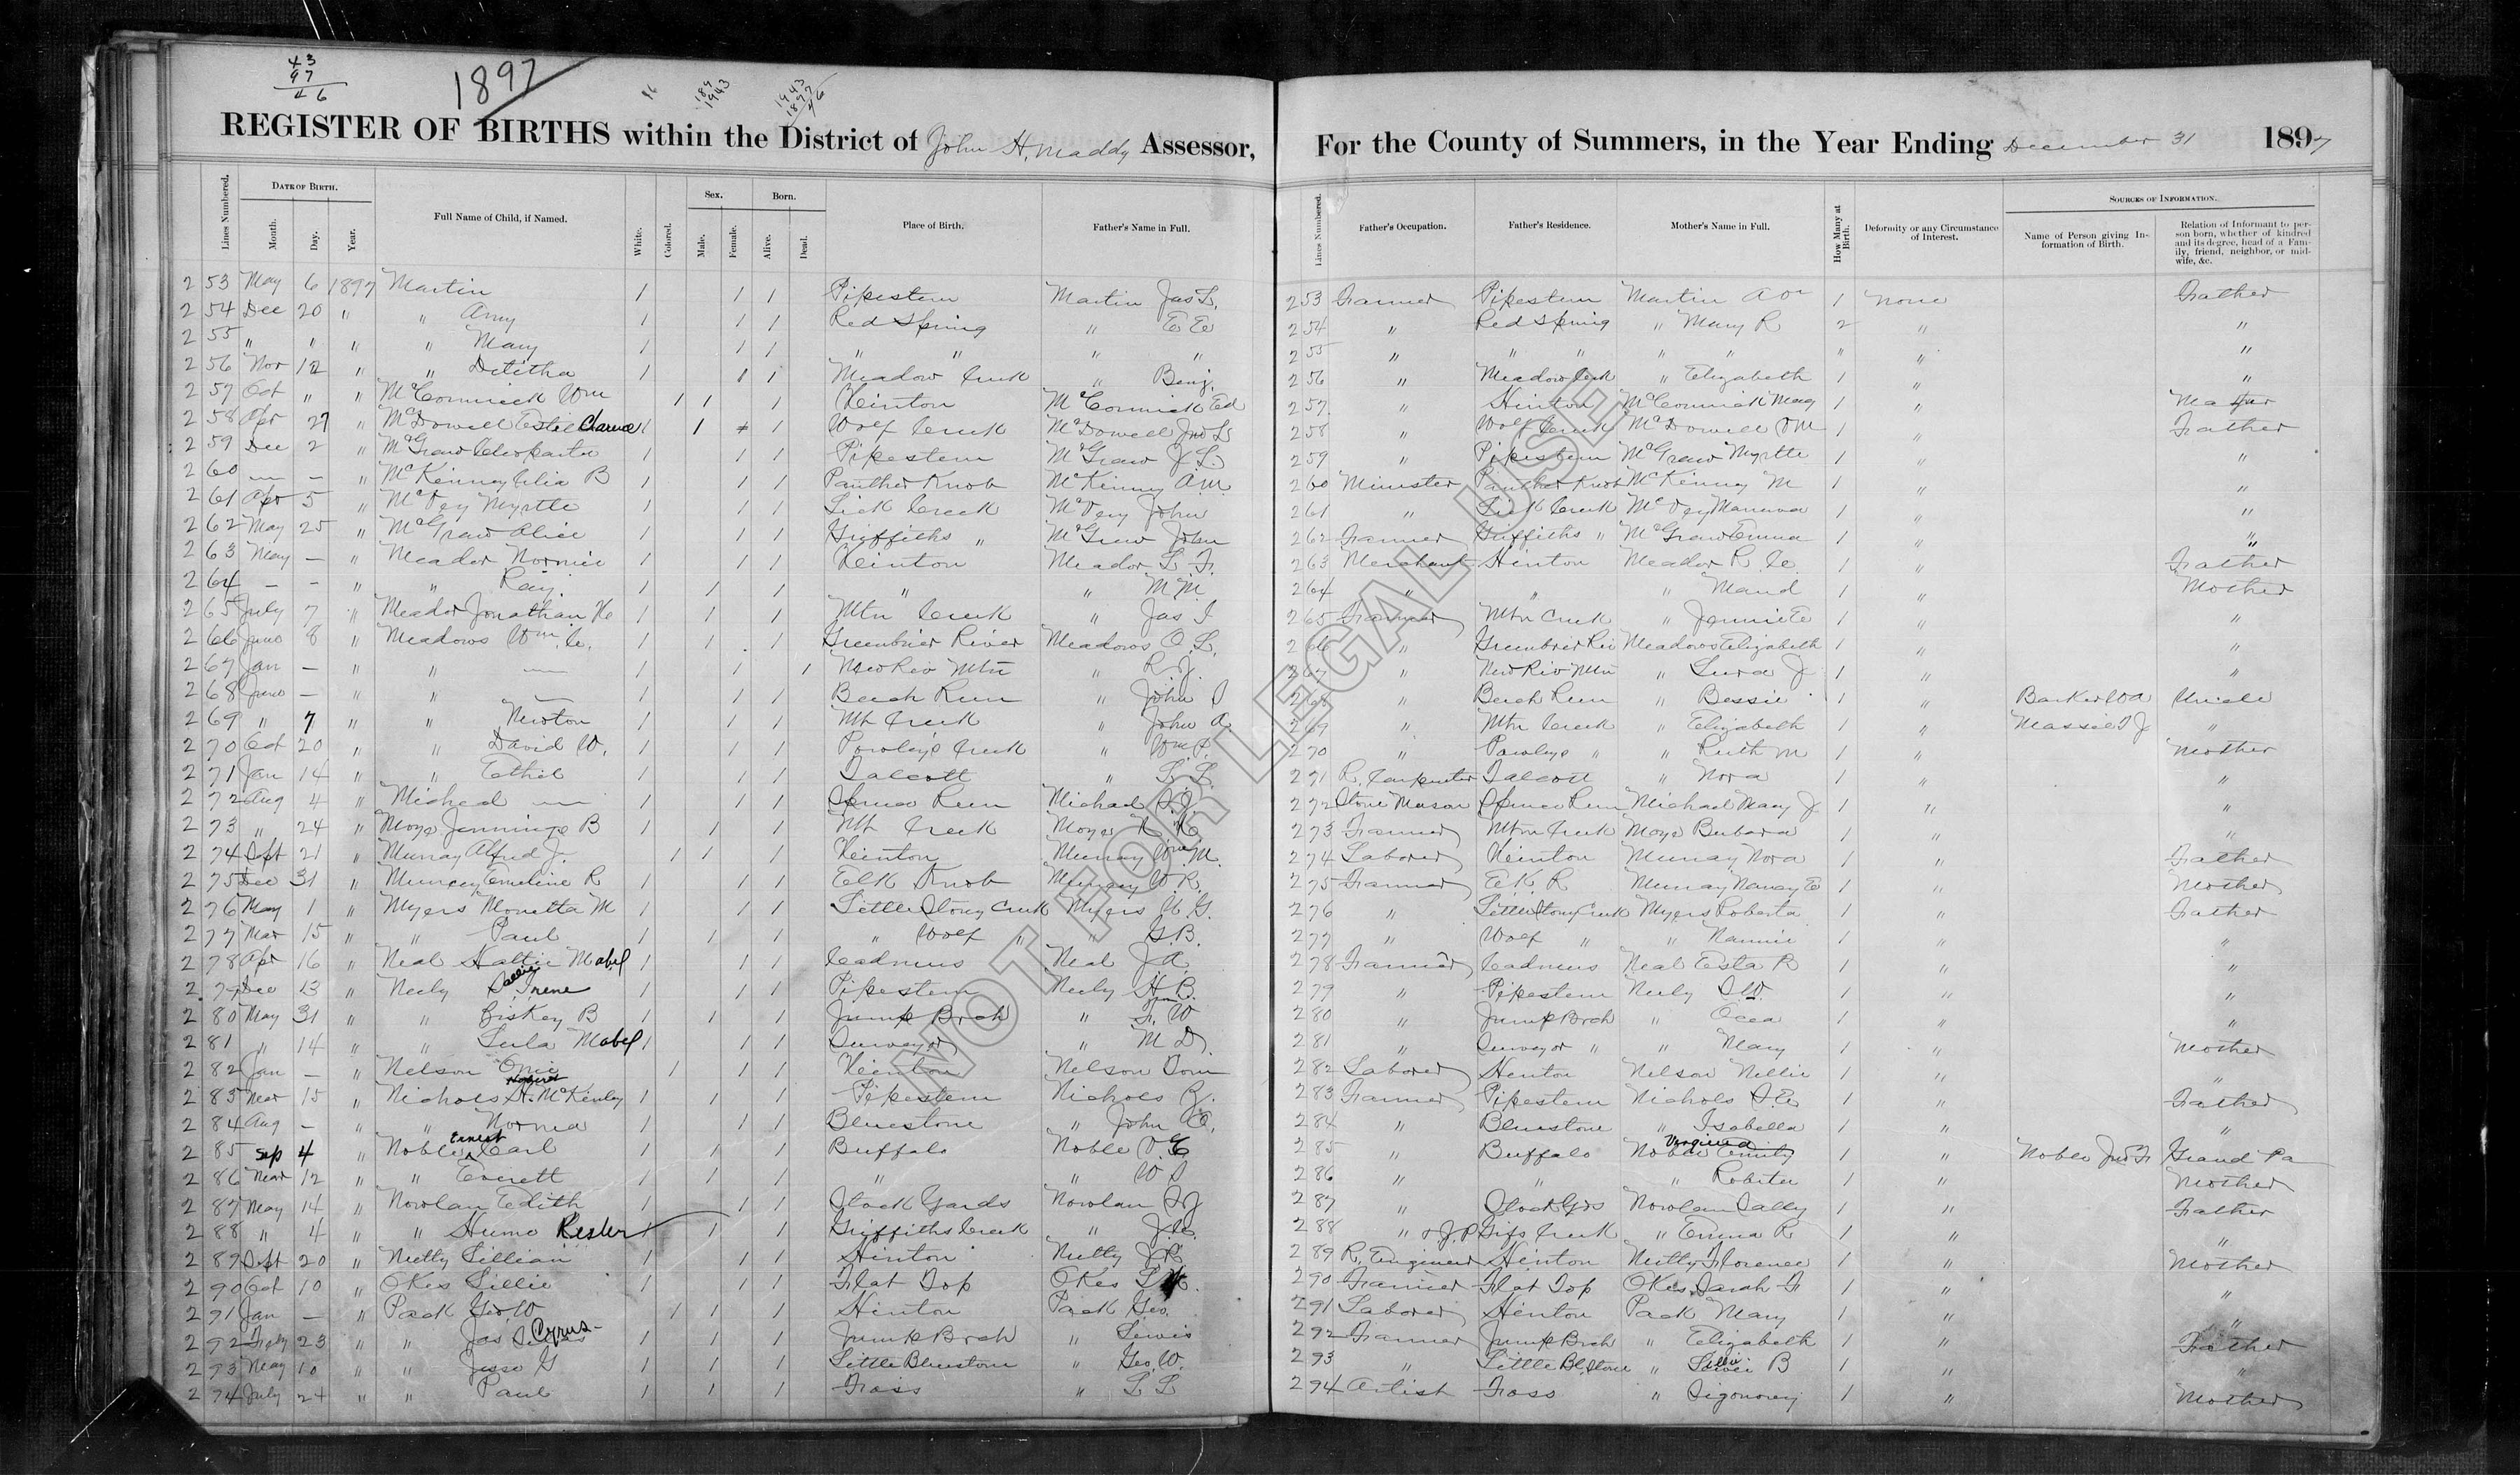 43
97
46
1897
189
1943
1943
1897
46
REGISTER OF BIRTHS within the District of John H. Maddy Assessor, For the County of Summers, in the Year Ending December 31 1897
Lines Numbered. Date of Birth. Month. Day. Year. Full Name of Child, if Named. White. Colored. Sex. Male. Female. Born. Alive. Dead. Place of Birth. Father's Name in Full.
Lines Numbered. Father's Occupation. Father's Residence. Mother's Name in Full. How Many at Birth. Deformity or any Circumstance of Interest. Sources of Information. Name of Person giving Information of Birth. Relation of Informant to person born, whether of kindred and its degree, head of a Family, friend, neighbor, or midwife, &c.
253 May 6 1897 Martin 1 1 1 Pipestem Martin Jas L. 253 Farmer Pipestem Martin 1 None Father
254 Dec 20 " " Amy 1 1 1 Red Spring " E E 254 " Red Spring " Mary R 2 " "
255 " " " " Mary 1 1 1 " " " " 255 " " " " " " " "
256 Nov 12 " " Detitha 1 1 1 Meadow Creek " Benj. 256 " Meadow Creek " Elizabeth 1 " "
257 Oct " " McCormick Wm 1 1 1 Hinton McCormick Ed 257 " Hinton McCormick Mag 1 "
258 Apr 27 " McDowell Estil Clarence 1 1 1 Wolf Creek McDowell Jno L 258 " Wolf Creek McDowell V M 1 " Father
259 Dec 2 " McGraw Cleopartra 1 1 1 Pipestem McGraw J L. 259 " Pipestem McGraw Myrtle 1 " "
260 — — " McKinney Celia B 1 1 1 Panther Knob McKinny A M. 260 Minister Panther Knob McKinny M 1 " "
261 Apr 5 " McVey Myrtle 1 1 1 Lick Creek McVey John 261 " Lick Creek McVey Manerva 1 " "
262 May 25 " McGraw Alice 1 1 1 Griffiths " McGraw John 262 Farmer Griffiths " McGraw Emma 1 " "
263 May — " Meador Normie 1 1 1 Hinton Meador L. F. 263 Merchant Hinton Meador R. C. 1 " Father
264 — — " " Ray. 1 1 1 " " M M. 264 " " " Maud 1 " Mother
265 July 7 " Meador Jonathan H 1 1 1 Mtn Creek " Jas I 265 Farmer Mtn Creek " Jennie E 1 " "
266 June 8 " Meadows Wm. C. 1 1 1 Greenbrier River Meadows O. L. 266 " Greenbrier Riv Meadows Elizabeth 1 " "
267 Jan — " " — 1 1 1 New Riv Mtn " R. J. 267 " New Riv Mtn " Lura J 1 " "
268 June — " " — 1 1 1 Beech Run " John S 268 " Beech Run " Bessie 1 " Barker W A Uncle
269 " 7 " " Newton 1 1 1 Mt Creek " John A. 269 " Mtn Creek " Elizabeth 1 " Massie T J "
270 Oct 20 " " David W. 1 1 1 Powley's Creek " Wm P. 270 " Powleys " " Ruth M 1 " Mother
271 Jan 14 " " Ethel 1 1 1 Talcott " L. L. 271 R. Carpenter Talcott " Nora 1 " "
272 Aug 4 " Micheal — 1 1 1 Spruce Run Michael 272 Stone Mason Spruce Run Michael Mary J 1 " "
273 " 24 " Moye Jennings B 1 1 1 Mt Creek Moye 273 Farmer Mtn Creek Moye Barbara 1 " "
274 Sept 21 " Murray Alfred J. 1 1 1 Hinton Murray Wm M. 274 Laborer Hinton Murray Nora 1 " Father
275 Dec 31 " Muncey Emeline R 1 1 1 Elk Knob W. R. 275 Farmer E. K. R Nancy E 1 " Mother
276 May 1 " Myers Monetta M 1 1 1 Little Stony Creek Myers U. G. 276 " Little Stony Creek Myers Roberta 1 " Father
277 Mar 15 " " Paul 1 1 1 " Wolf " " G. B. 277 " Wolf " " Nannie 1 " "
278 Apr 16 " Neal Hattie Mabel 1 1 1 Cadmus Neal J A. 278 Farmer Cadmus Neal Esta B 1 " "
279 Dec 13 " Neely Sallie Irene 1 1 1 Pipestem Neely H B. 279 " Pipestem Neely S W. 1 " "
280 May 31 " " Biskey B 1 1 1 Jump Brch " F. W 280 " Jump Brch " Ocea 1 " "
281 " 14 " " Lula Mabel 1 1 1 Surveyor " M D. 281 " Surveyor " " Mary 1 " Mother
282 Jan — " Nelson Onie 1 1 1 Hinton Nelson Tom 282 Laborer Hinton Nelson Nellie 1 " "
283 Mar 15 " Nichols H. McKinley 1 1 1 Pipestem Nichols Z. 283 Farmer Pipestem Nichols S. E. 1 " Father
284 Aug — " " Norma 1 1 1 Bluestone " John C. 284 " Bluestone " Isabella 1 " "
285 Sep 4 " Noble Ernest Carl 1 1 1 Buffalo Noble V. E 285 " Buffalo Noble Virginia 1 " Noble Jno F Grand Pa
286 Mar 12 " " Everett 1 1 1 " " W S 286 " " " Robiter 1 " Mother
287 May 14 " Nowlan Edith 1 1 1 Stock Yards Nowlan S J 287 " Stock Yds Nowlan Sally 1 " Father
288 " 4 " " Humo Resler 1 1 1 Griffiths Creek " J. C. 288 " & J. P Grifs Creek " Emma R 1 " "
289 Sept 20 " Nutty Lillian 1 1 1 Hinton Nutty J. R. 289 R. Engineer Hinton Nutty Florence 1 " Mother
290 Oct 10 " Okes Lillie 1 1 1 Flat Top Okes L 290 Farmer Flat Top Okes Sarah F 1 " "
291 Jan — " Pack Geo. W 1 1 1 Hinton Pack Geo. 291 Laborer Hinton Pack Mary 1 " "
292 Feby 23 " " Jas Cyrus 1 1 1 Jump Brch " Lewis 292 Farmer Jump Brch " Elizabeth 1 " Father
293 May 10 " " Jesse G 1 1 1 Little Bluestone " Geo. W. 293 " Little Bl. Stone " B 1 " "
294 July 24 " " Paul 1 1 1 Foss " L L 294 Artist Foss " Sigonorey 1 " Mother
NOT FOR LEGAL USE